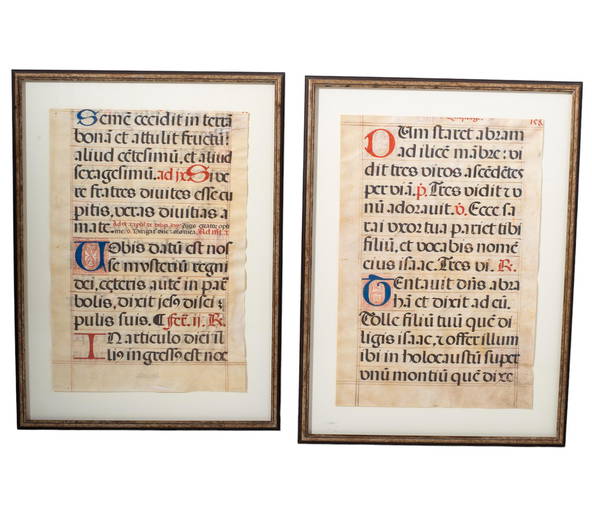 Semẽ cecidit in terrã
bonã et attulit fructũ
aliud cẽtesimũ, et aliud
sexagesimũ. ad iꝫ Si ve
re fratres divites esse cu
pitis, veras divitias a
mate.
Vobis datũ est nos
se mysteriũ regni
dei, ceteris autẽ in para
bolis, dixit jesꝰ disci
pulis suis. ii. R.
In articulo diei il
liꝰ ingressꝰ est noe
158
Dum staret abram
ad ilicẽ mãbre: vi
dit tres viros ascẽdẽtes
per viã. p̃. Tres vidit ⁊ v
nũ adorauit. v̇. Ecce sa
rai vxor tua pariet tibi
filiũ, et vocabis nomẽ e
ius isaac. Tres vi. R.
Tentauit dñs abra
hã et dixit ad eũ.
Tolle filiũ tuũ quẽ di
ligis isaac, ⁊ offer illum
ibi in holocaustũ super
vnũ montiũ quẽ dixe